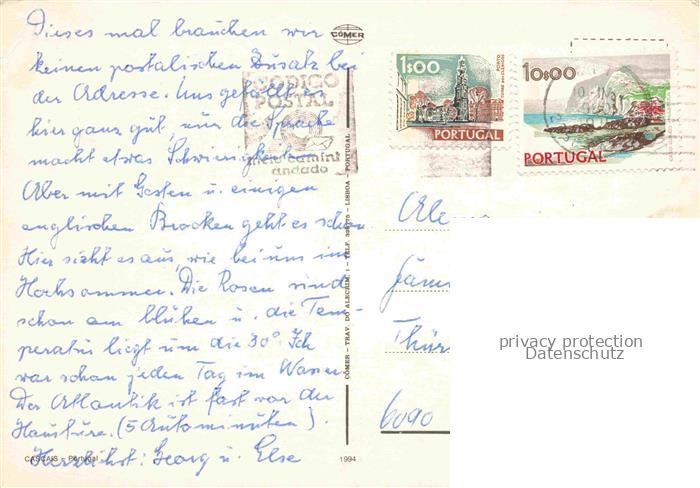 Dieses mal brauchen wir
keinen postalischen Zusatz bei
der Adresse. Uns gefällt es
hier ganz gut, nur die Sprache
macht etwas Schwierigkeiten.
Aber mit Gesten u. einigen
englischen Brocken geht es schon.
Hier sieht es aus, wie bei uns im
Hochsommer. Die Rosen sind
schon am blühen u. die Tem-
peratur liegt um die 30°. Ich
war schon jeden Tag im Wasser.
Der Atlantik ist fast vor der
Haustüre. (5 Autominuten).
Herzlichst: Georg u. Else
CASCAIS – Portugal
1994
CÓMER
CÓMER – TRAV. DO ALECRIM, 1 – LISBOA – PORTUGAL
CODIGO
POSTAL
meio caminho
andado
1$00
PORTUGAL
10$00
PORTUGAL
6090
privacy protection
Datenschutz